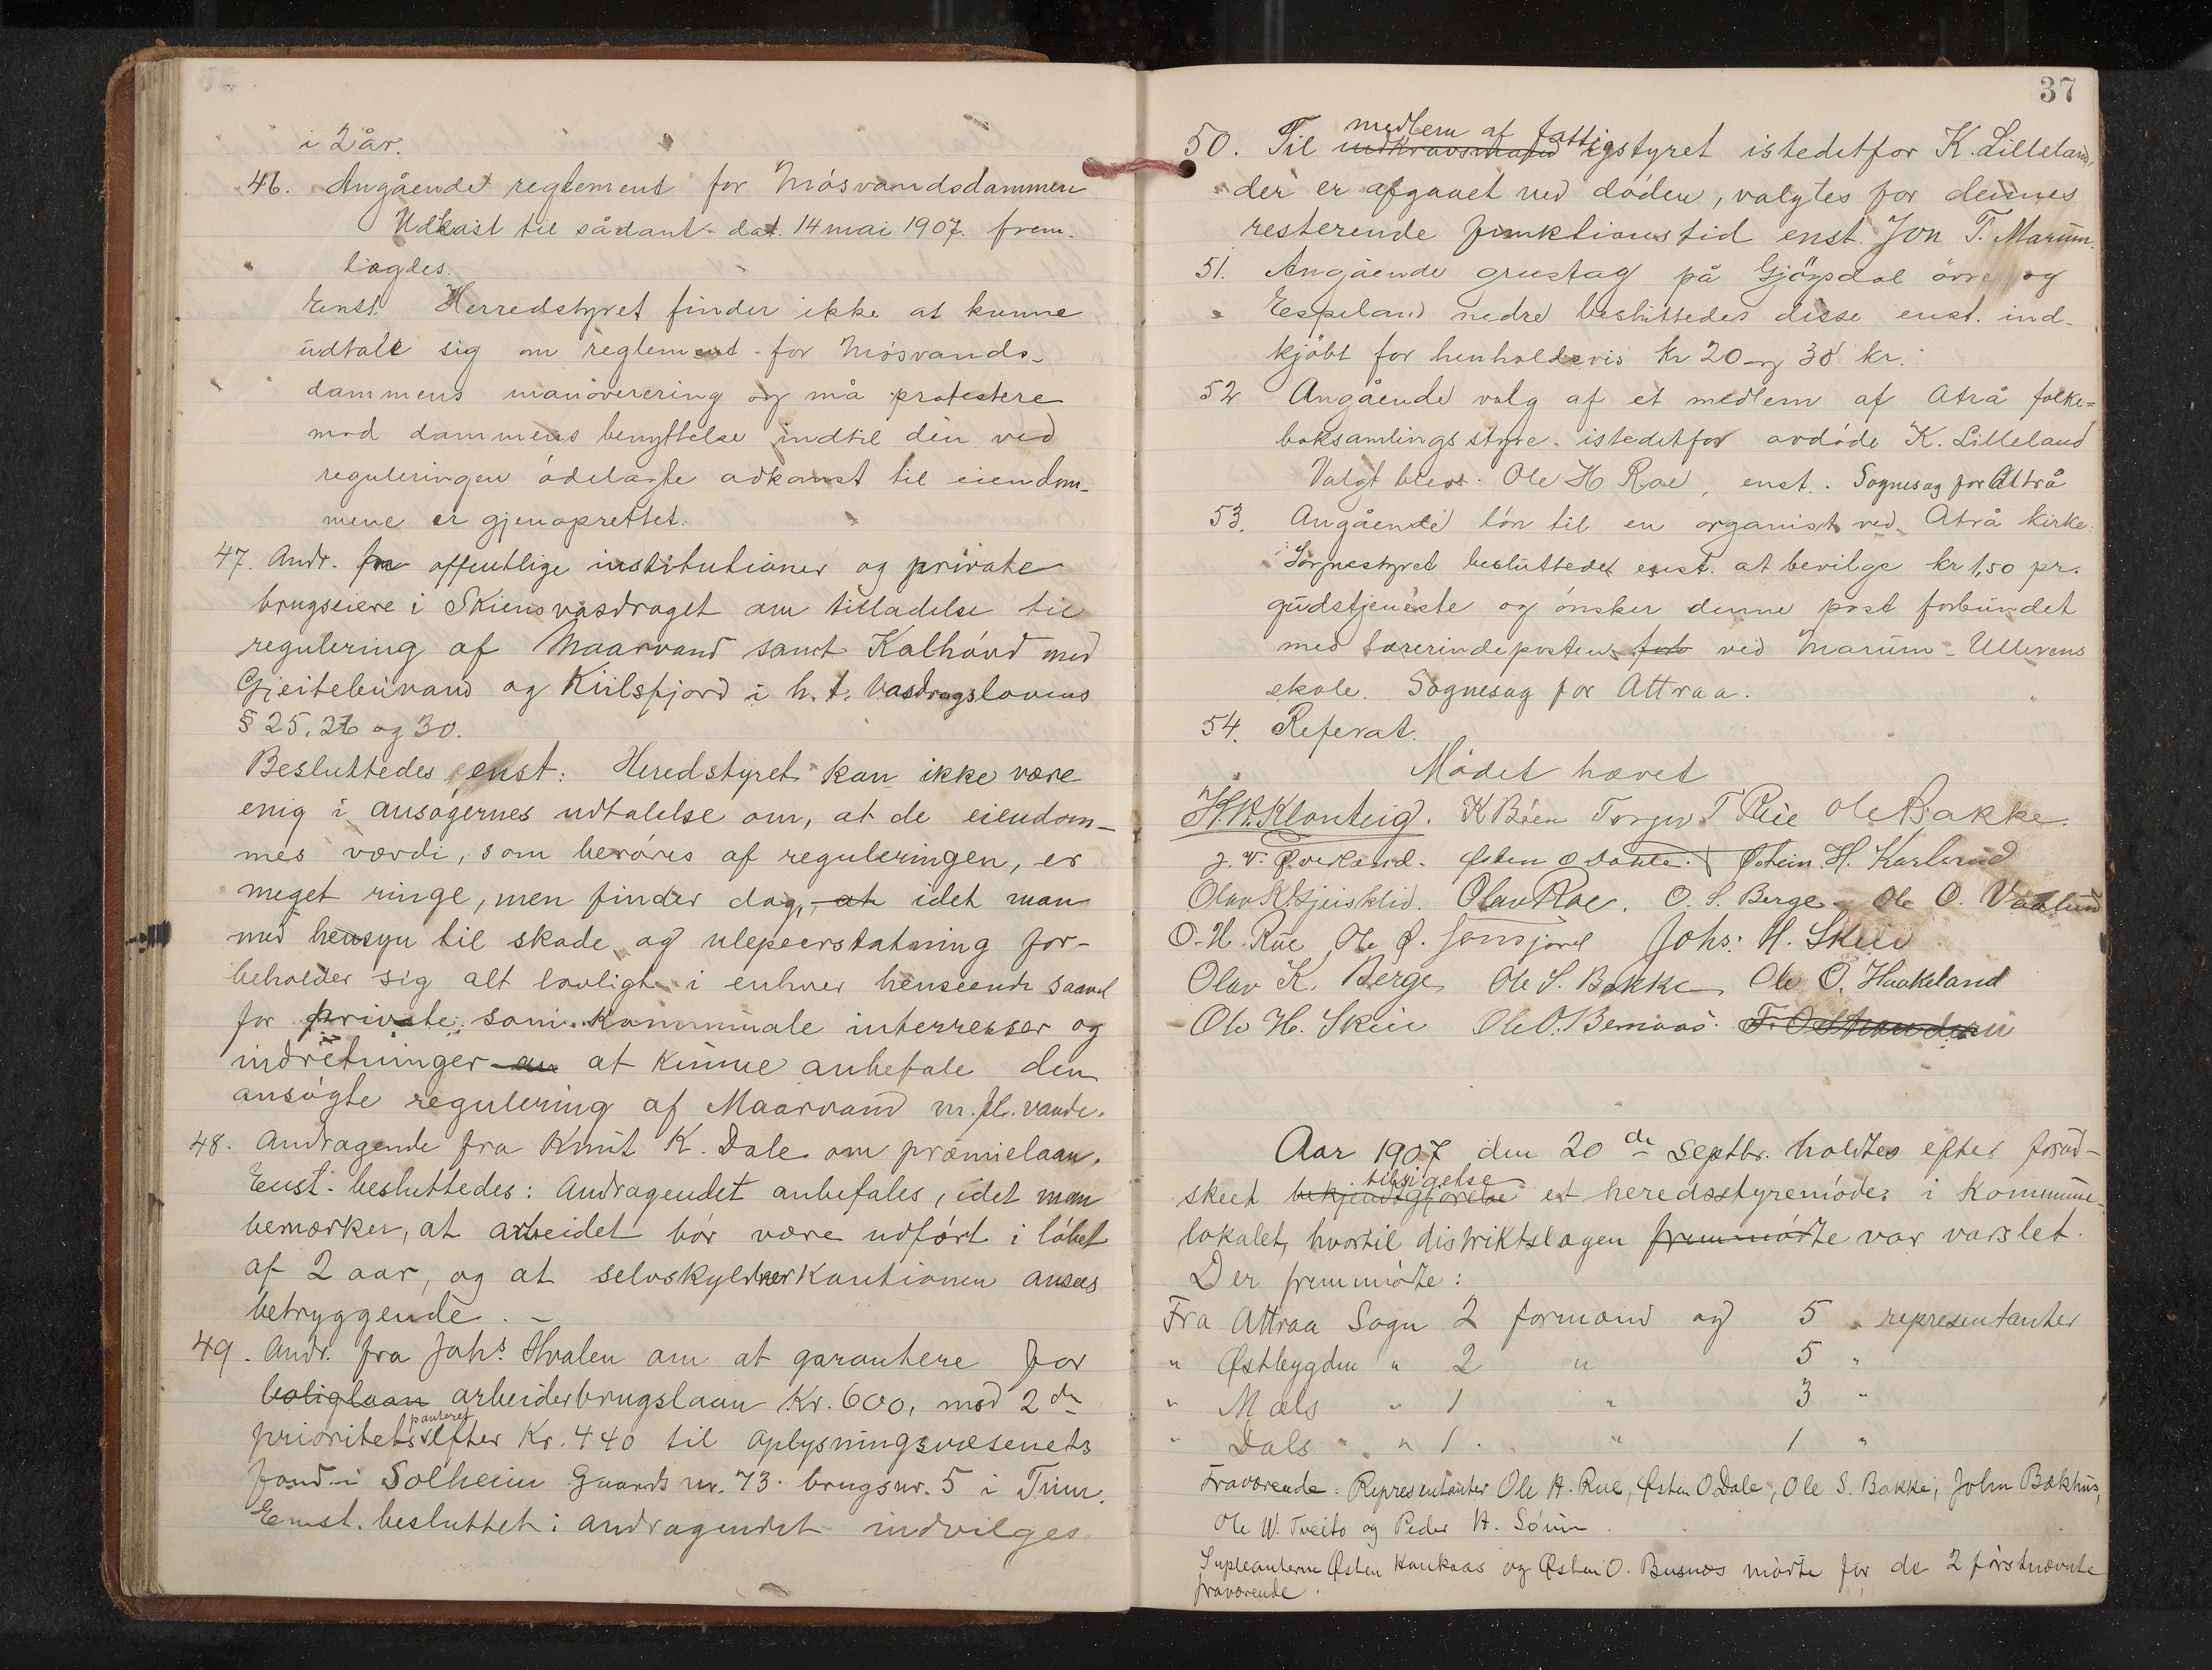 i 2 år.
46. Angående reglement for Mósvandsdammen
Udkast til sådant dat. 14 mai 1907. frem-
lagdes.
Enst. Herredstyret finder ikke at kunne
udtale sig om reglement for Mósvands-
dammens manóverering og må protestere
mod dammens benyttelse indtil den ved
reguleringen ódelagte adkomst til eiendom-
mene er gjenoprettet.
47. Andr. fra offentlige institutioner og private
brugseiere i Skiensvasdraget om tilladelse til
regulering af Maarvand samt Kalhóvd med
Gjeitebuvand og Kiilsfjord i h. t. Vasdragslovens
§ 25, 26 og 30.
Besluttedes enst: Heredstyret kan ikke være
enig i ansógernes udtalelse om, at de eiendom-
mes værdi, som beróres af reguleringen, er
meget ringe, men finder dog, at idet man
med hensyn til skade og ulepeerstatning for-
beholder sig alt lovligt i enhver henseende saavel
for private som kommunale interresser og
indretninger an at kunne anbefale den
ansógte regulering af Maarvand m. fl. vande.
48. Andragende fra Knut K. Dale om præmielaan.
Enst. besluttedes: Andragendet anbefales, idet man
bemærker, at arbeidet bór være udfórt i lóbet
af 2 aar, og at selvskyldnerkautionen ansees
betryggende. –
49. Andr. fra Johs. Hvalen om at garantere for
boliglaan arbeiderbrugslaan Kr. 600, mod 2den
panteret
prioritets efter Kr. 440 til Oplysningsvæsenets
fond i Solheim Gaards nr. 73. brugsnr. 5 i Tinn.
Enst. besluttet: andragendet indvilges
37
medlem af fatt
50. Til indkrævsmand igstyret istedetfor K. Lilleland,
der er afgaaet ved dóden, valgtes for dennes
resterende funktionstid enst. Jon T. Marum.
51. Angående grustag på Gjóysdal óvre og
Espeland nedre besluttedes disse enst. ind-
kjóbt for henholdsvis kr 20 og 30 kr.
52 Angående valg af et medlem af Atrå folke=
boksamlings styre istedetfor avdóde K. Lilleland
Valgt blev Ole H Rae, enst. Sognesag for Attrå
53. Angående lón til en organist ved Atrå kirke.
Sognestyret besluttedes enst. at bevilge kr 1,50 pr.
gudstjeneste og ónsker denne post forbundet
med lærerindeposten forb ved Marum - Ullerens
skole. Sognesag for Attraa.
54. Referat.
Módet hævet
H. K. Klonteig. K Bóen Torger T Rue Ole Bakke.
J. V. Øverland. Østen O Dale. Østein H. Karlsrud
Olav K. Gjeisklid. Olav Rae. O. S. Berge Ole O. Vaalund
O. H. Rue Ole Ø. Johs: H. Skeie
Olav K. Berge Ole S. Bakke Ole O. Haakeland
Ole H. Skeie Ole O. Bernaas.
Aar 1907 den 20de Septbr. holdtes efter forud-
tilsigelse
skeet bekjendtgjórelse et heredsstyremóde i Kommune-
lokalet, hvortil distriktslægen fremmódte var varslet.
Der fremmódte:
Fra Attraa Sogn 2 formænd og 5 representanter
" Østbygden " 2 " 5 "
" Mæls " 1 " 3 "
" Dals " 1 " 1 "
Fraværende: Representanter Ole H. Rue, Østen O. Dale, Ole S. Bakke, John Bakhus,
Ole W. Tveito og Peder H. Sórum.
Supleanterne Østen Haukaas og Østen O. Busnes módte for de 2 fórstnævnte
fraværende.